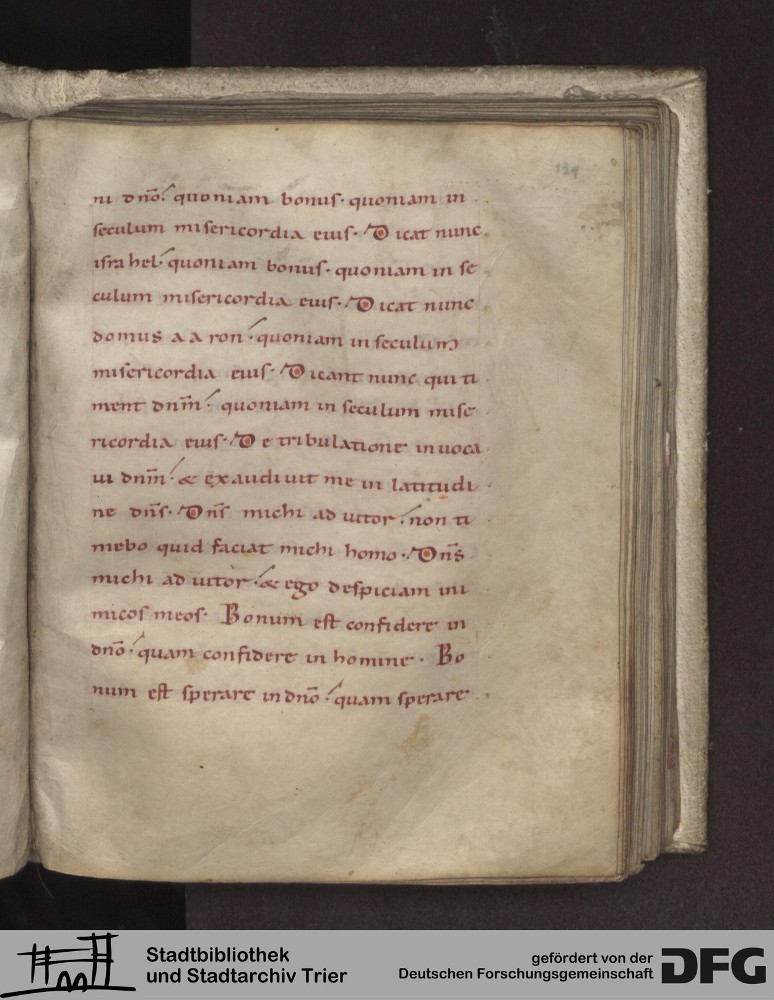 134
ni dño quoniam bonus· quoniam in
seculum misericordia eius· Dicat nunc
israhel quoniam bonus· quoniam in se
culum misericordia eius· Dicat nunc
domus aaron quoniam in seculum
misericordia eius· Dicant nunc qui ti
ment dnm̄ quoniam in seculum mise
ricordia eius· De tribulatione inuoca
ui dnm̄ & exaudiuit me in latitudi
ne dns̄· Dns̄ michi adiutor non ti
mebo quid faciat michi homo· Dns̄
michi adiutor & ego despiciam ini
micos meos· Bonum est confidere in
dño quam confidere in homine· Bo
num est sperare in dño quam sperare
Stadtbibliothek
und Stadtarchiv Trier
gefördert von der
Deutschen Forschungsgemeinschaft
DFG